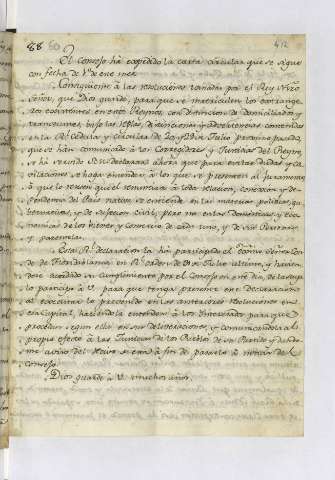 88 412
El Consejo há expedido la carta circular que se sigue
con fecha de 1º de este mes.
Consiguiente á las resoluciones tomadas por el Rey Ntrô
Señor, que Dios guarde, para que se matriculen los extrange-
ros existentes en estos Reynos, con distincion de domiciliados y
transeuntes, bajo las reglas, distinciones y advertencias contenidas
en la Rl Cedula y de Julio proximo pasado,
que se han comunicado á los Corregidores y Justicias del Reyno,
se há servido S.M. declarar ahora que para evitar dudas y ca-
vilaciones se haga entender á los que se presenten al juramento
ó que lo rehusen que el renunciar á toda relacion, conexion y de-
pendencia del Pais nativo se entiende en las materias politicas, gu-
bernativas, y de sujecion civil; pero no en las domesticas y eco-
nomicas de los bienes y comercio de cada uno, y de sus Personas
y parentelas.
Esta Rl declaracion la há participado el Exmo Señor Con-
de de Floridablanca en Rl orden de del ultimo, y havien-
dose acordado su cumplimiento por el Consejo en este dia, de la suya
lo participo á V. para que tenga presente esta declaracion
al executar lo prevenido en las anteriores resoluciones en
esa Capital, haciendola entender á los interesados para que
procedan segun ella en sus deliberaciones, y comunicandola al
propio efecto á las Justicias de los Pueblos de su Partido y dando-
me aviso del recivo de esta á fin de pasarlo á noticia del
Consejo.
Dios guarde á V. muchos años.